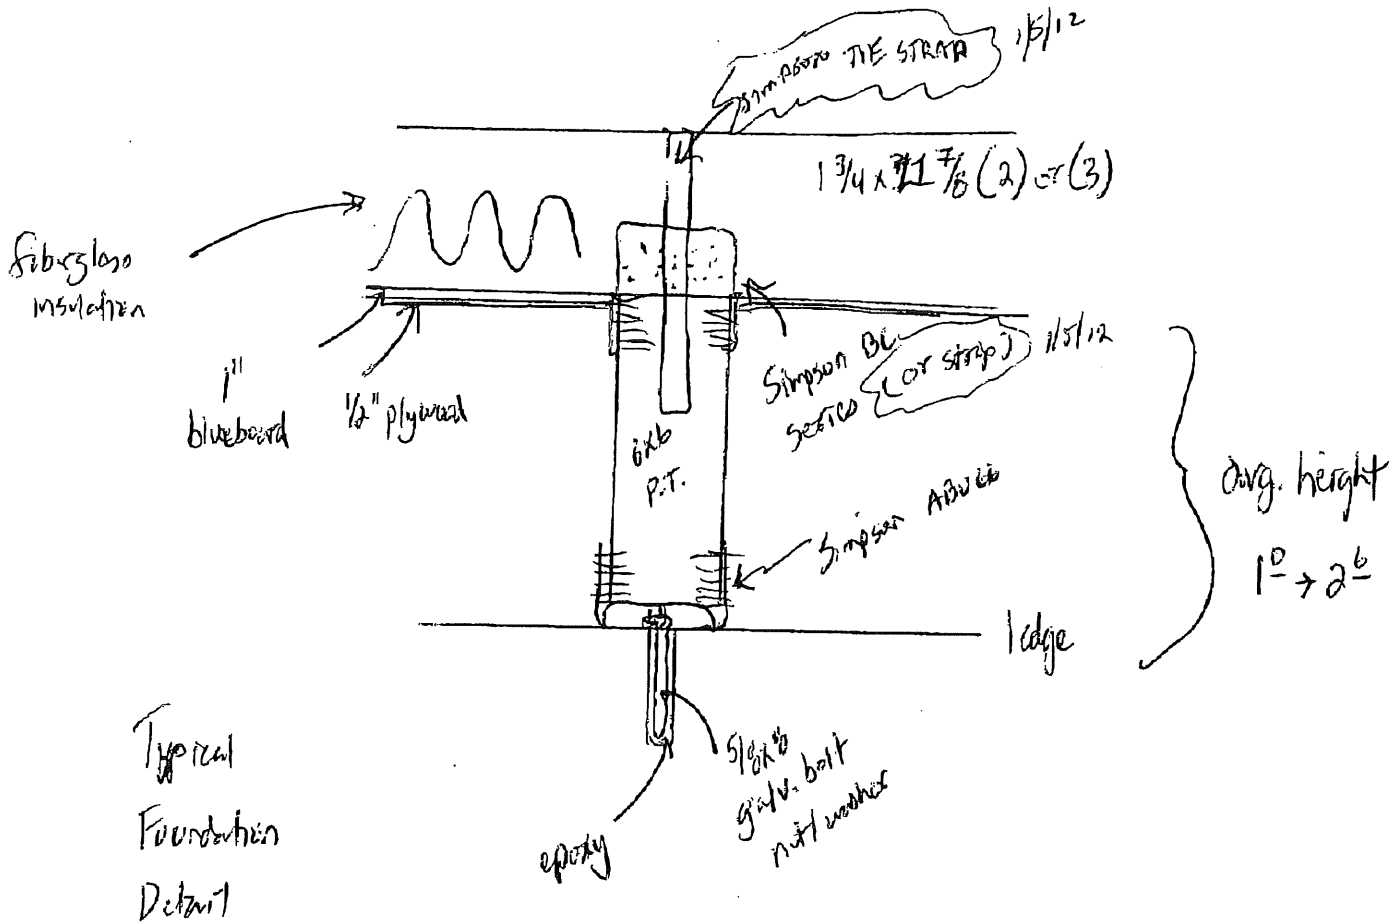 SIMPSON TIE STRAP
1/5/12
1 3/4 x 11 7/8 (2) or (3)
fiberglass
insulation
1"
blueboard
1/2" plywood
Simpson BC
series (or strap)
1/5/12
6x6
P.T.
Simpson ABU66
Avg. height
1⁰ → 2⁶
ledge
5/8x8
galv. bolt
nut/washer
epoxy
Typical
Foundation
Detail